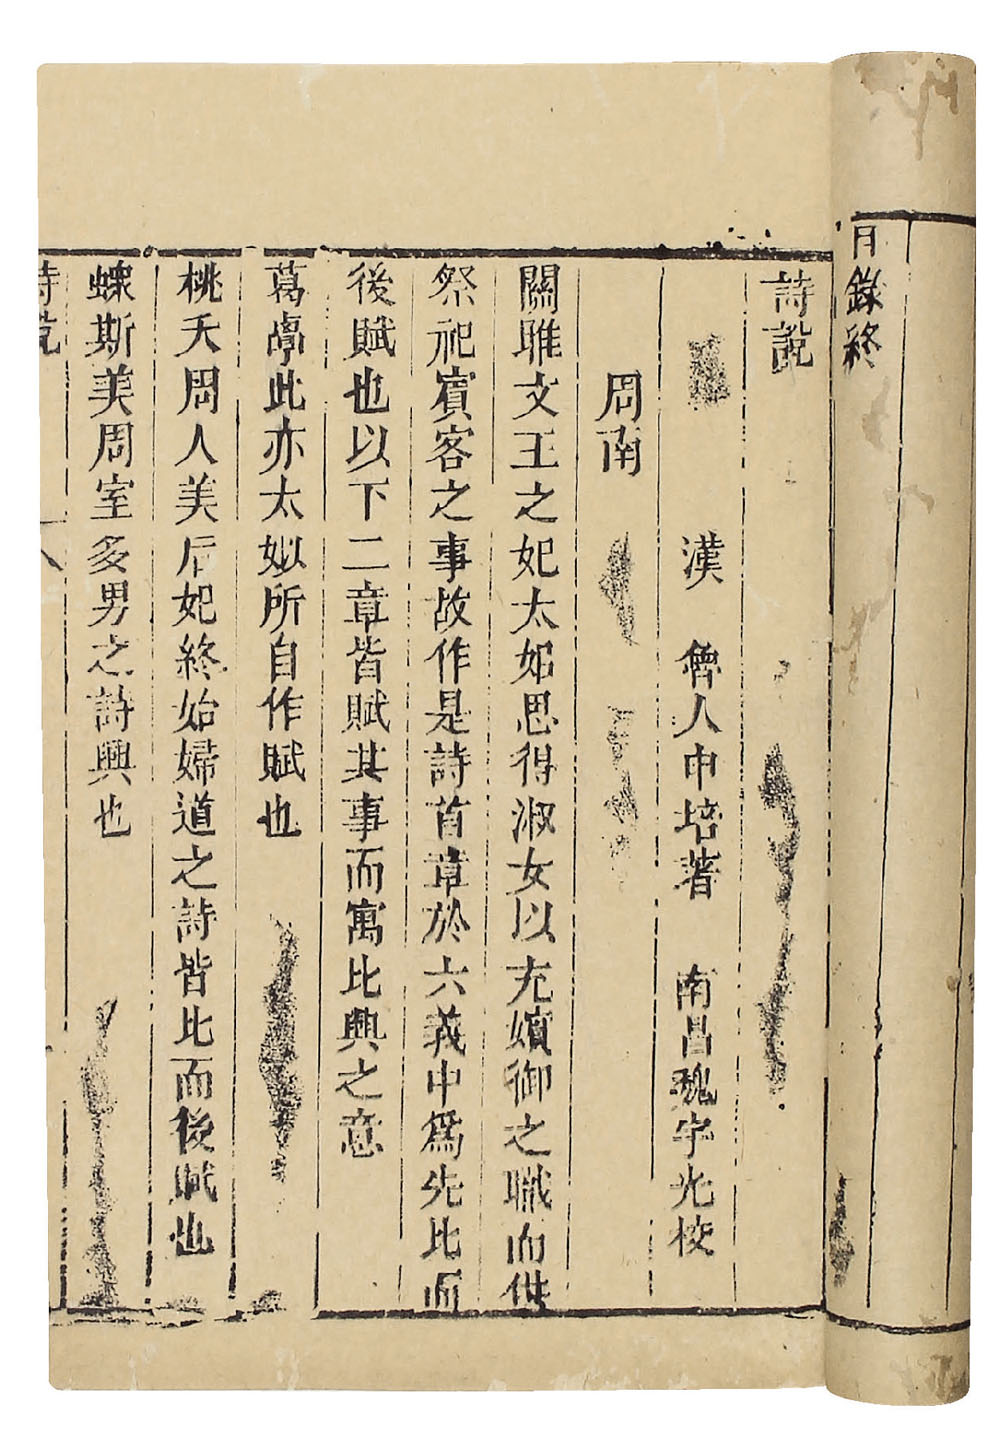 目錄終
詩說
漢 魯人申培著 南昌魏字光校
周南
關雎文王之妃太姒思得淑女以充嬪御之職而供
祭祀賓客之事故作是詩首章於六義中爲先比而
後賦也以下二章皆賦其事而寓比興之意
葛覃此亦太姒所自作賦也
桃夭周人美后妃終始婦道之詩皆比而後賦也
螽斯美周室多男之詩興也
詩說